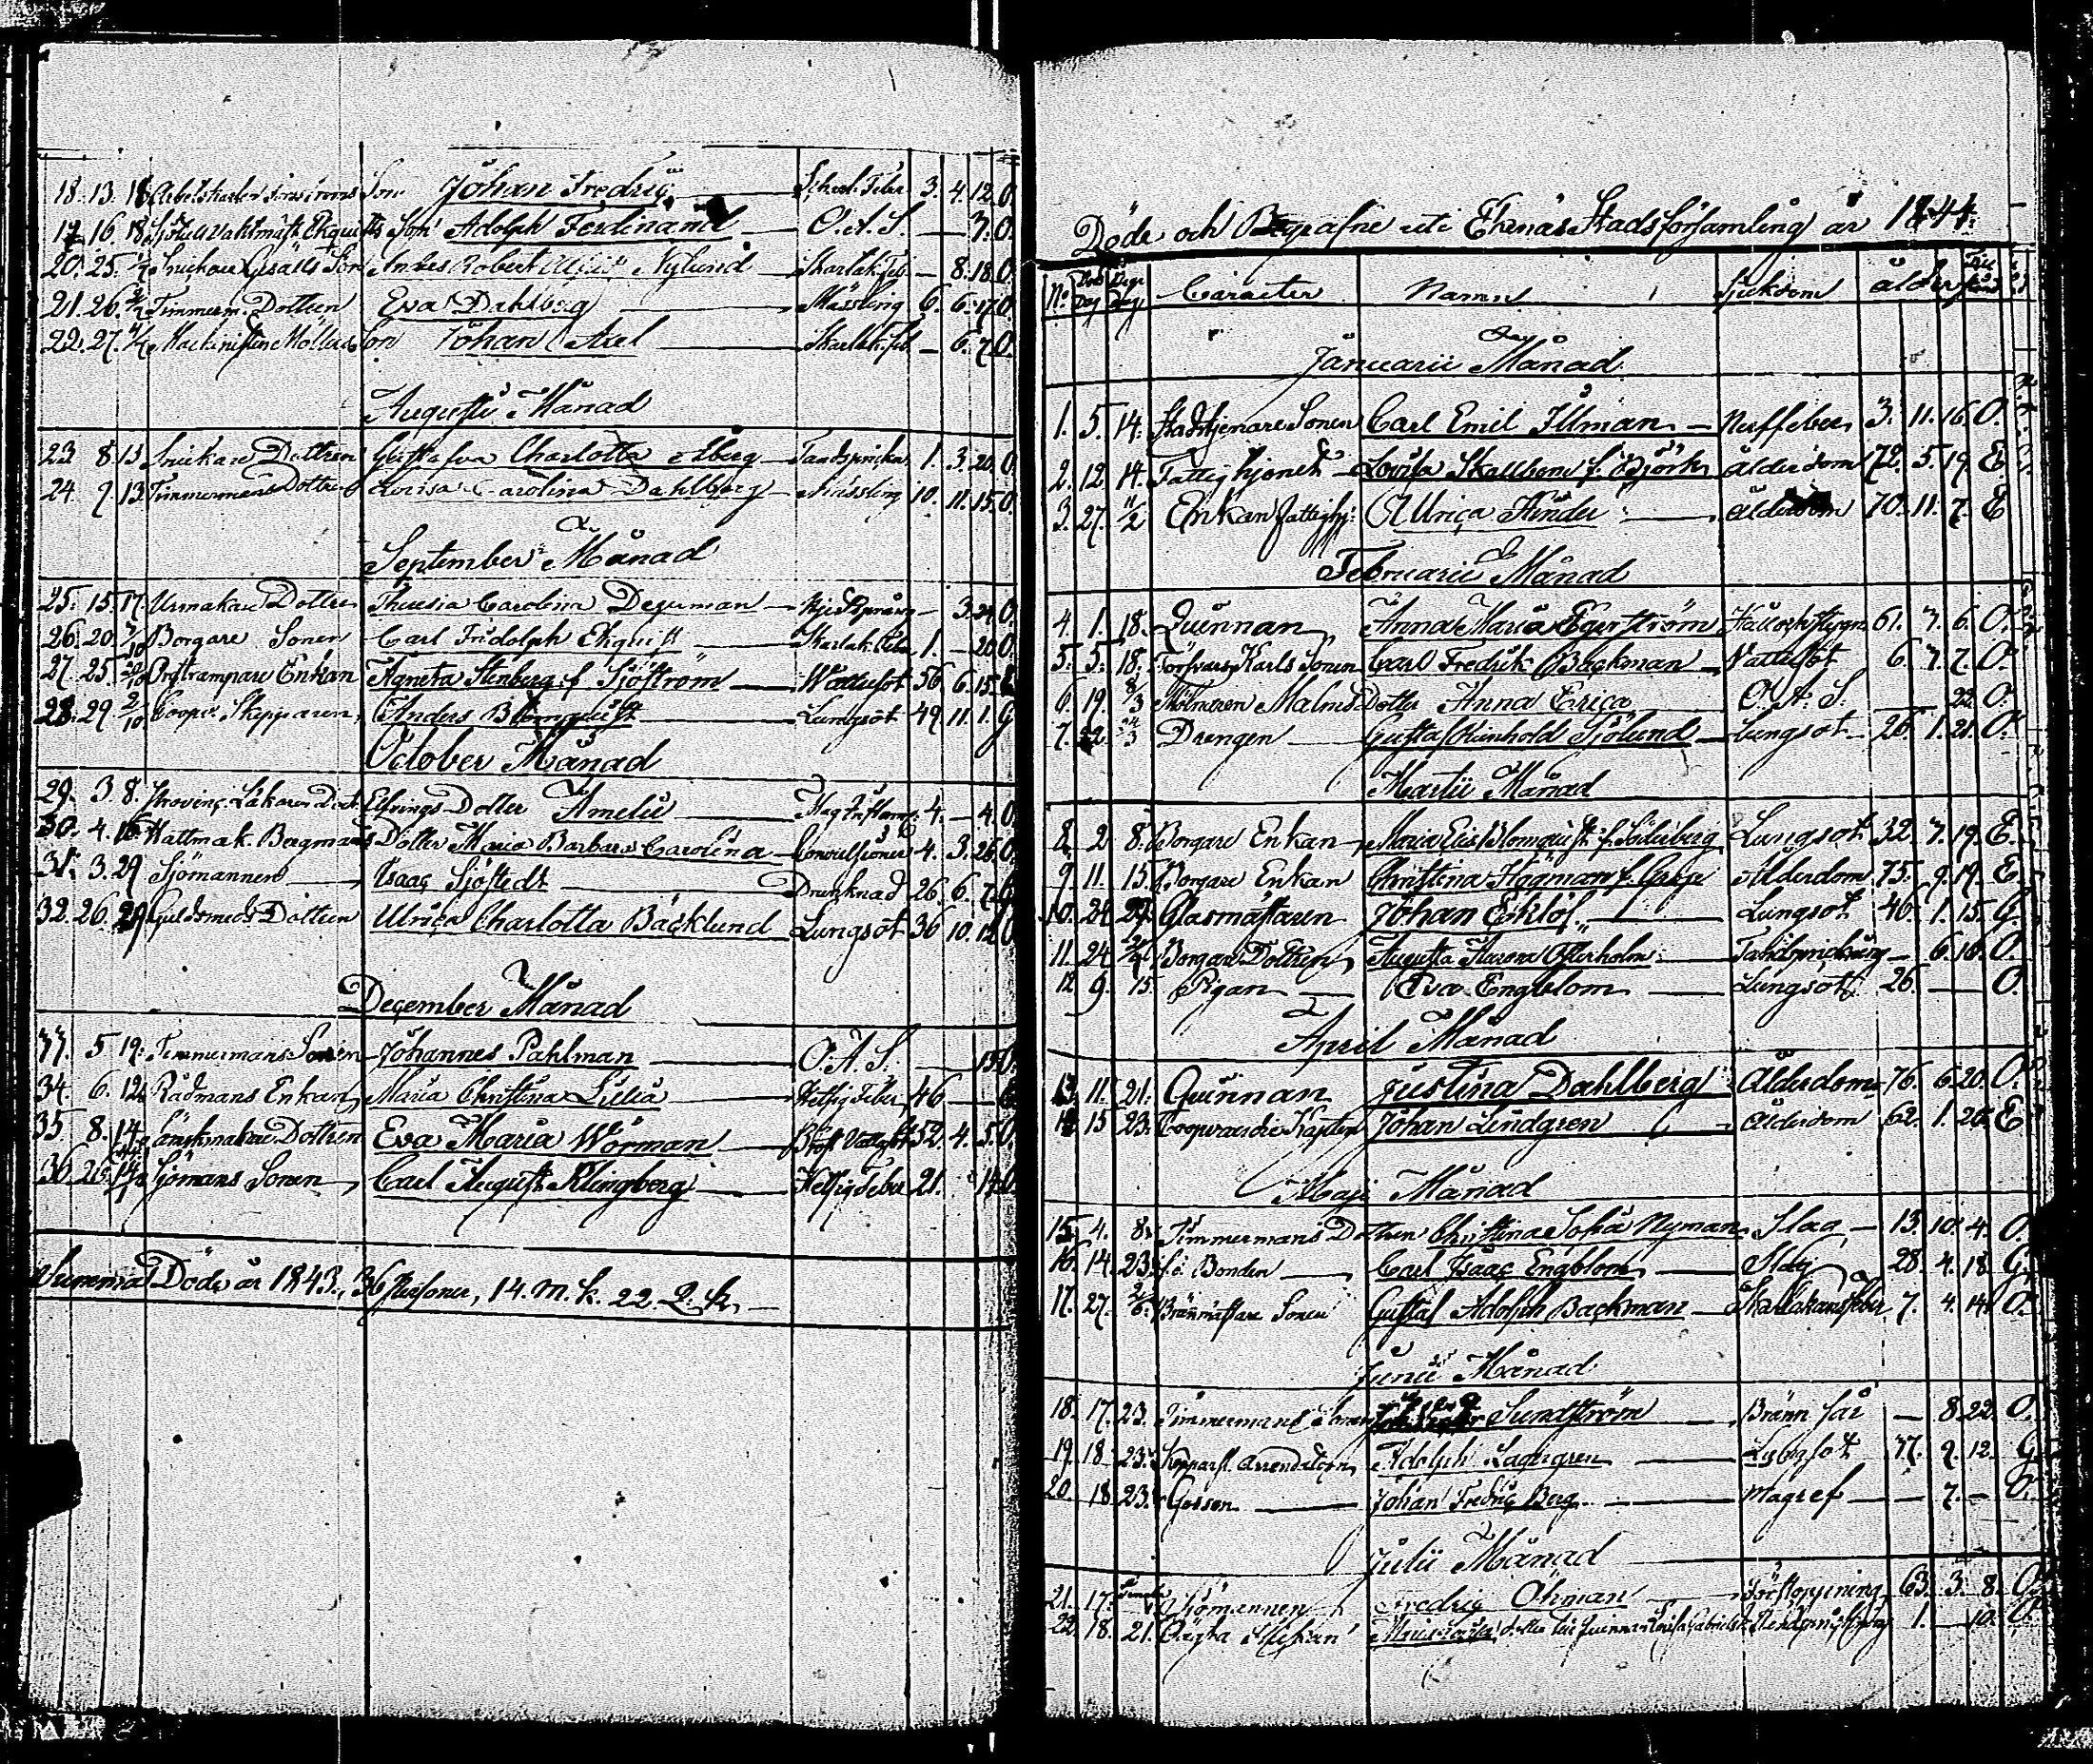 18. 13. 18. Arbetskarlen Son Johan Fredric Scharl. Feber 3. 4. 12. O.
16. 18. Ekquists Son Adolph Ferdinand O. A. S. — 7. O.
20. 25. Snickare Gesälls Son Robert Nylund Skarlak. Feb. — 8. 18. O.
21. 26. Timmerm. Dottren Eva Dahlberg Mässling 6. 6. 17. O.
22. 27. Machinisten Möllers Son Johan Axel Skarlak. feb. — 6. 7. O.
Augusti Månad
23 8. 13 Snickare Dottren Gustafva Charlotta Åberg Tandsprickn. 1. 3. 20. O.
24 9. 13. Timmermans Dottren Lovisa Carolina Dahlberg Mässling 10. 11. 15. O.
September Månad
25. 15. 17. Urmakare Dottren Theresia Carolina Degerman — 3. 24. O.
26. 20. Borgare Sonen Carl Fridolph Ekquist Skarlak. Feber 1. — 20. O.
27. 25. Enkan Agneta Stenberg f. Sjöström Wattusot 56. 6. 15. E
28. 29. 2/10. Coop. Skepparen Anders Blomquist Lungsot 49. 11. 1. G
October Månad
29. 3. 8. Provinc. Läkaren Elfvings Dotter Amelie 4. — 4. O.
30. 4. 16. Hattmak. Bergmans Dotter Maria Barbara Carolina Convulsioner 4. 3. 26. O.
31. 3. 29 Sjömannen Isaac Sjöstedt Drunknad 26. 6. 7. G
32. 26. 29. Guldsmeds Dottren Ulrica Charlotta Bäcklund Lungsot 36 10. 12. O
December Månad
33. 5 19. Timmermans Sonen Johannes Pahlman O. A. S. — 15. O.
34. 6. 12. Rådmans Enkan Maria Christina Lilia Hetsig Feber 46 — E
35 8. 14. Dottren Eva Maria Wörman Bröst Vattusot 52. 4. 5. O.
36. Sjömans Sonen Carl August Klingberg Hetsig Feber 21. 14. O.
Summa Döde år 1843., 36 Personer, 14. M. k. 22. Q. k.
Döde och Begrafne uti Ekenäs Stadsförsamling år 1844.
No. Död Dag Begr. Dag Caracter Namn Sjukdom ålder
Januarii Månad
1. 5. 14. Stadstjenare Sonen Carl Emil Illman — Nerffeber 3. 11. 16. O.
2. 12 14. Fattighjonet Lovisa Skallbom f. Björk Ålderdom 72. 5. 19. E
3. 27. 11/2 Enkan fattighj: Ulrica Finder ålderdom 70. 11. 7. E
Februarii Månad
4. 1. 18. Quinnan Anna Maria Egerström 61. 7. 6. O.
5. 5. 18. Karls Sonen Carl Fredrik Backman Vattusot 6. 7. 7. O.
6. 19. /3 Malms Dotter Anna Erica O. A. S. — 22. O.
7. 22. /3 Drengen Gustaf Reinhold Sjölund Lungsot 26. 1. 21. O.
Martii Månad
8. 2 8. Borgare Enkan Maria Blomquist f. Söderberg Lungsot 32. 7. 19. E.
9. 11. 15. Borgare Enkan Christina Högman f. Ålderdom 75. 9. 19. E.
10. 24. 29. Glasmästaren Johan Eklöf Lungsot 46. 1. 15. G.
11. 24. Borgare Dottren Augusta Aurora Österholm Tandsprickning — 6. 16. O.
12 9. 15. Pigan Eva Engblom Lungsot 26. — O.
April Månad
13. 11. 21. Quinnan Justina Dahlberg Ålderdom 76. 6. 20. O.
14 15 23. Coopvaerdie Kapten Johan Lindgren ålderdom 62. 1. 26. E
Maji Månad
15. 4. 8. Timmermans Dottren Christina Sofia Nyman Slag 13. 10. 4. O.
16. 14. 23. Bonden Carl Isaac Engblom Slag 28. 4. 18. G.
17. 27. 2/6. Sonen Gustaf Adolph Backman Skarlakansfeber 7. 4. 14. O.
Junii Månad
18. 17. 23. Timmermans Sonen Sundström Bränn sår — 8. 22. O.
19. 18. 23. Arrendatorn Adolph Lagergren Lungsot 77. 9. 12. G.
20. 18. 23. Gossen Johan Fredric Berg Magref — 7. — O.
Julii Månad
21. 17. Sjömannen Fredric Öhman Förstoppning 63. 3. 8. O.
22. 18. 21. Oägta Flickan dotter till Quinnan 1. — 10. O.